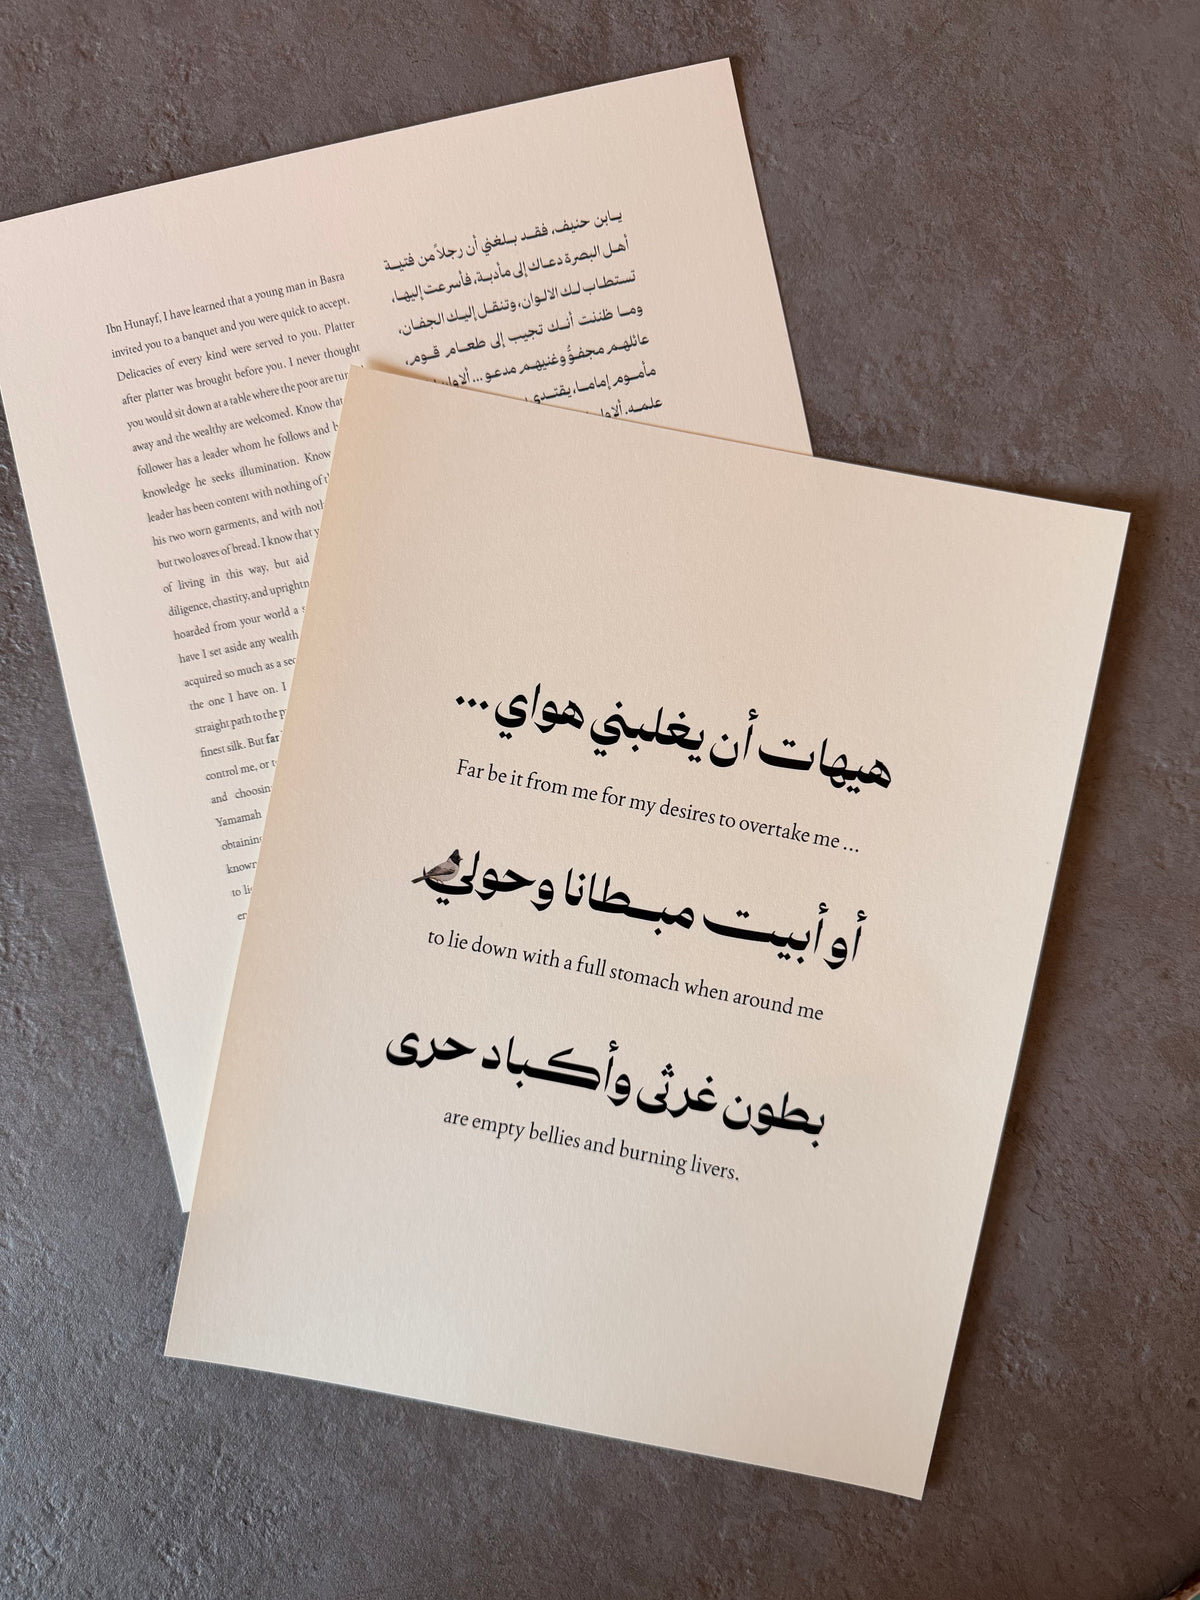 يابن حنيف، فقد بلغني أن رجلاً من فتية
أهل البصرة دعاك إلى مأدبة، فأسرعت إليها،
تستطاب لك الالوان، وتنقل إليك الجفان،
وما ظننت أنك تجيب إلى طعام قوم،
عائلهم مجفوٌّ وغنيهم مدعو... ألا وإن
مأموم إماما، يقتدي
علمه. ألا وإن
Ibn Hunayf, I have learned that a young man in Basra
invited you to a banquet and you were quick to accept.
Delicacies of every kind were served to you. Platter
after platter was brought before you. I never thought
you would sit down at a table where the poor are
away and the wealthy are welcomed. Know that
follower has a leader whom he follows and
knowledge he seeks illumination. Know
leader has been content with nothing of
his two worn garments, and with
but two loaves of bread. I know that
of living in this way, but aid
diligence, chastity, and
hoarded from your world a
have I set aside any wealth
acquired so much as a
the one I have on. I
straight path to the
finest silk. But far
control me, or
and
Yamamah
obtaining
known
to
هيهات أن يغلبني هواي ...
Far be it from me for my desires to overtake me ...
أو أبيت مبطانا وحولي
to lie down with a full stomach when around me
بطون غرثى وأكباد حرى
are empty bellies and burning livers.